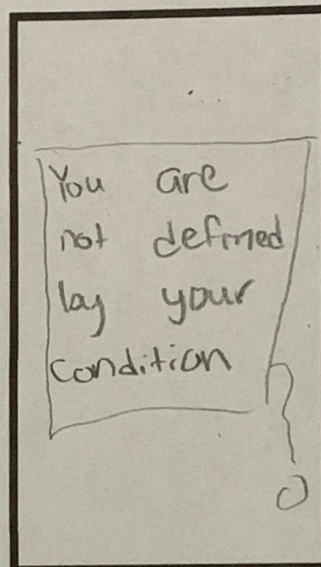 You are
not defined
by your
condition